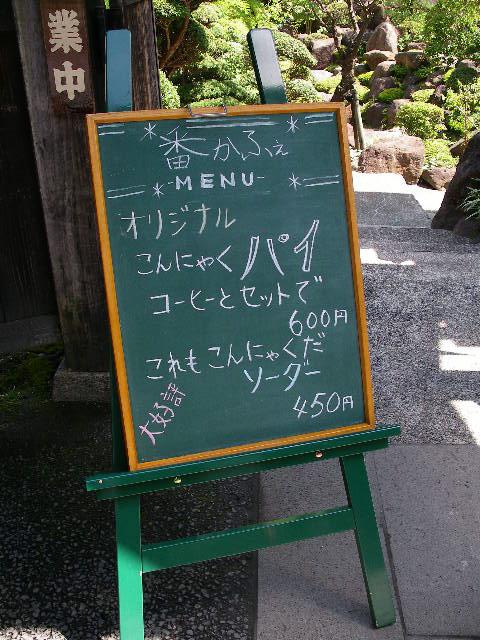 業中
番かふぇ
-MENU-
オリジナル
こんにゃくパイ
コーヒーとセットで
600円
これもこんにゃくだ
ソーダー
大好評
450円